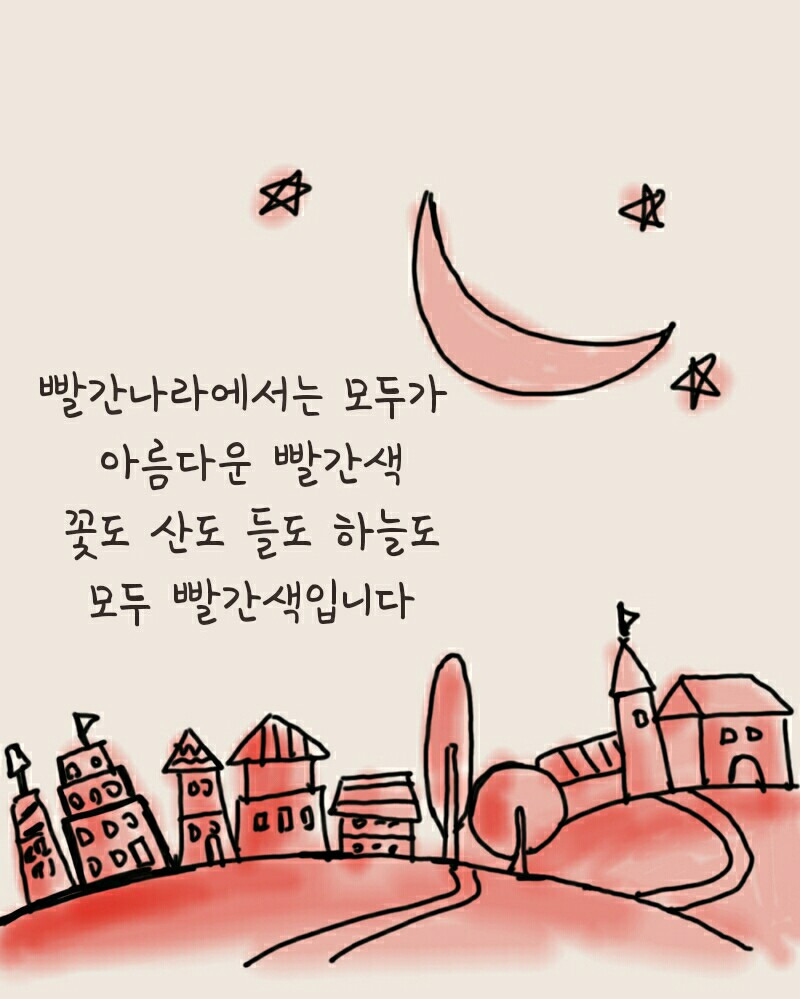 빨간나라에서는 모두가
아름다운 빨간색
꽃도 산도 들도 하늘도
모두 빨간색입니다